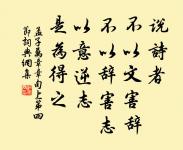 說詩者
不以文害辭
不以辭害志
以意逆志
是為得之
孟子萬章章句上第四
節詞典網集